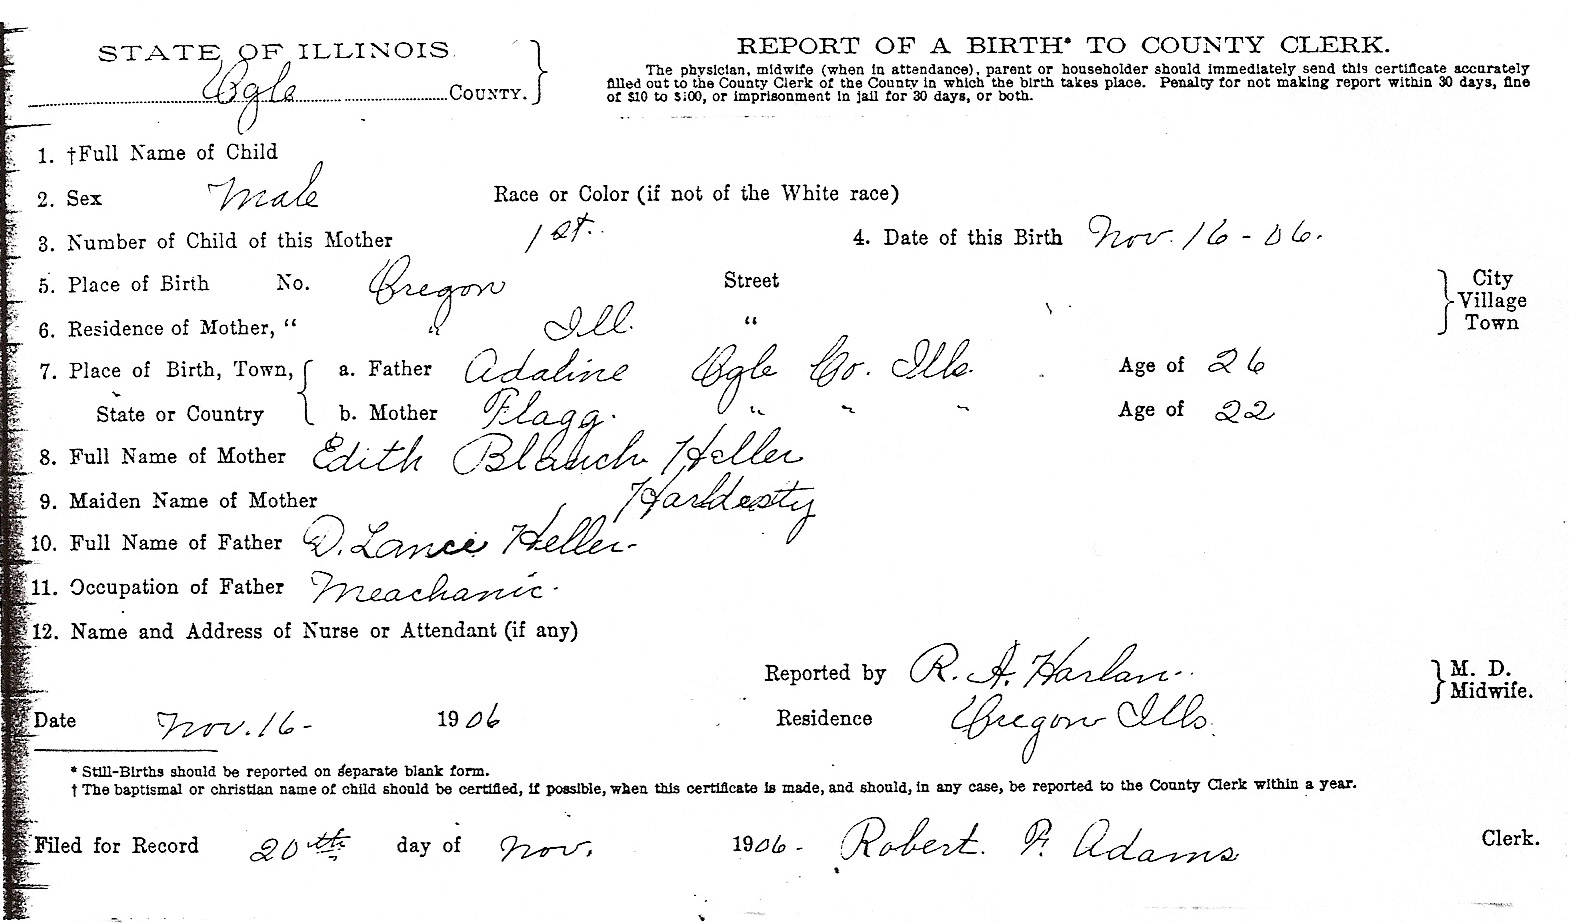 STATE OF ILLINOIS.
Ogle COUNTY.
REPORT OF A BIRTH* TO COUNTY CLERK.
The physician, midwife (when in attendance), parent or householder should immediately send this certificate accurately
filled out to the County Clerk of the County in which the birth takes place. Penalty for not making report within 30 days, fine
of $10 to $100, or imprisonment in jail for 30 days, or both.
1. †Full Name of Child
2. Sex Male Race or Color (if not of the White race)
3. Number of Child of this Mother 1st. 4. Date of this Birth Nov. 16 - 06.
5. Place of Birth No. Oregon Street City
Village
6. Residence of Mother, " " Ill. " Town
7. Place of Birth, Town, a. Father Adaline Ogle Co. Ills. Age of 26
State or Country b. Mother Flagg. " " " Age of 22
8. Full Name of Mother Edith Blanch Heller
9. Maiden Name of Mother Hardesty
10. Full Name of Father D. Lance Heller
11. Occupation of Father Meachanic.
12. Name and Address of Nurse or Attendant (if any)
Reported by R. A. Harlan M. D.
Midwife.
Date Nov. 16 - 1906 Residence Oregon Ills.
* Still-Births should be reported on separate blank form.
† The baptismal or christian name of child should be certified, if possible, when this certificate is made, and should, in any case, be reported to the County Clerk within a year.
Filed for Record 20th day of Nov. 1906 - Robert F. Adams Clerk.